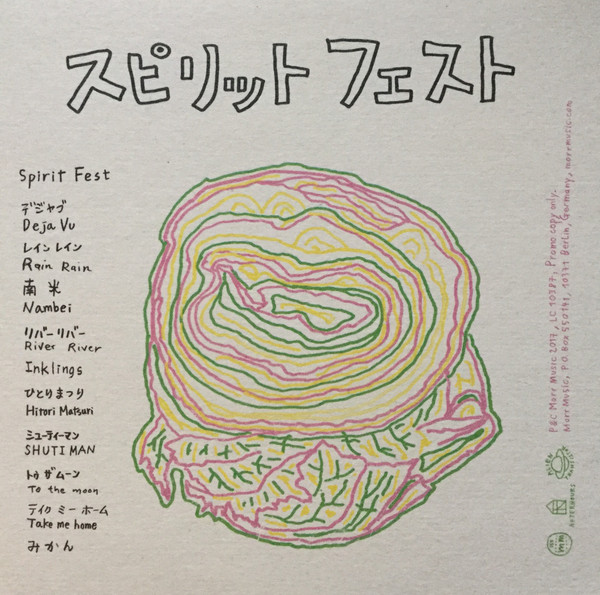 スピリット フェスト
Spirit Fest
デジャブ
Deja Vu
レイン レイン
Rain Rain
南米
Nambei
リバーリバー
River River
Inklings
ひとりまつり
Hitori Matsuri
ミューティーマン
SHUTI MAN
トゥ ザ ムーン
To the moon
テイク ミー ホーム
Take me home
みかん
P&C Morr Music 2017, LC 10387, Promo copy only.
Morr Music, P.O.Box 550141, 10371 Berlin, Germany, morrmusic.com